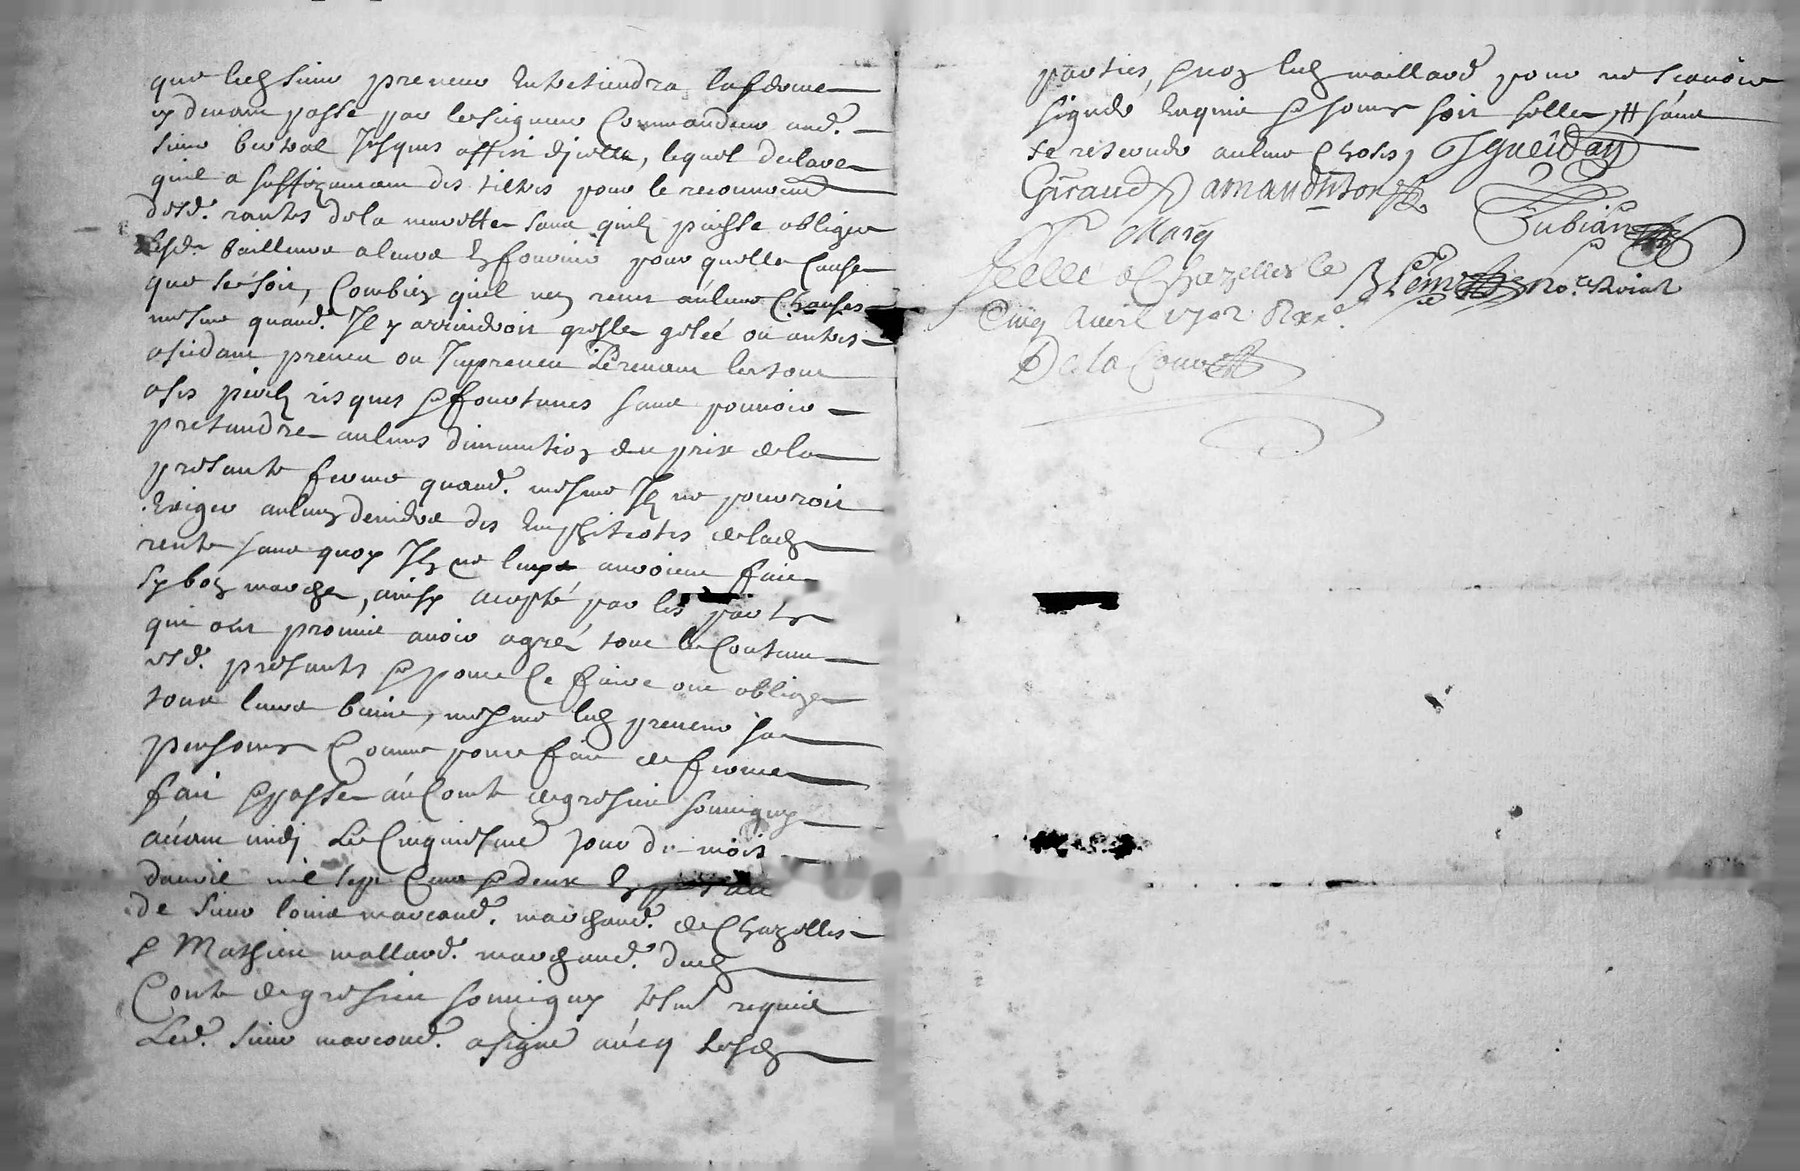 que led sieur preneur entretiendra la ferme
cy devant passé par le seigneur Commandeur aud.
sieur bertral Jusques affin dicelle, lequel declare
quil a suffizamant des tiltres pour le recouvremt
desd. rantes de la murette sans quil puisse obliger
lesd. bailleurs a leurs en fournir pour quelle cause
que se soit, Combien quil ne reut aulcune Chauses
mesme quand. Il y arriveroit gresle gelée ou autres
accidant preveu ou Inpreveu prenant le tout
a ses perilz risques et fourtunes sans pouvoir
pretandre aulcune diminution du prix de la
presante ferme quand. mesme Il ne pourroit
Exiger aulcung denier des Emphiteotes de lad
rente sans quoy Ilz ne luy auroient fait
sy bon marché, ainsy accepté par les parties
qui ont promis avoir agreé tout le Contenu
esd. presants et pour Ce faire ont obligé
tous leurs biens, mesme led preneur sa
personne Comme pour fait de ferme
fait et passé au Conte de gresieu souvigny
avant midj Le Cinquiesme jour du mois
davril mil sept Cent et deux En presance
de sieur louis marcoud. marchand. de Chazelles
et Mathieu mallard. marchand. dud
Conte de gresieu souvigny tesmz requis
Led. sieur marcoud. a signé avecq lesd
parties, et non led maillard pour ne scavoir
signer Enquis et sommé soit sellé # sans
se reservé aulcune Choses, Gueiday
Giraud Damaudriton
Marq Fubian
scellé a Chazelles le no.re Roial
Cinq Avril 1702 Rxx s.
De la Cour